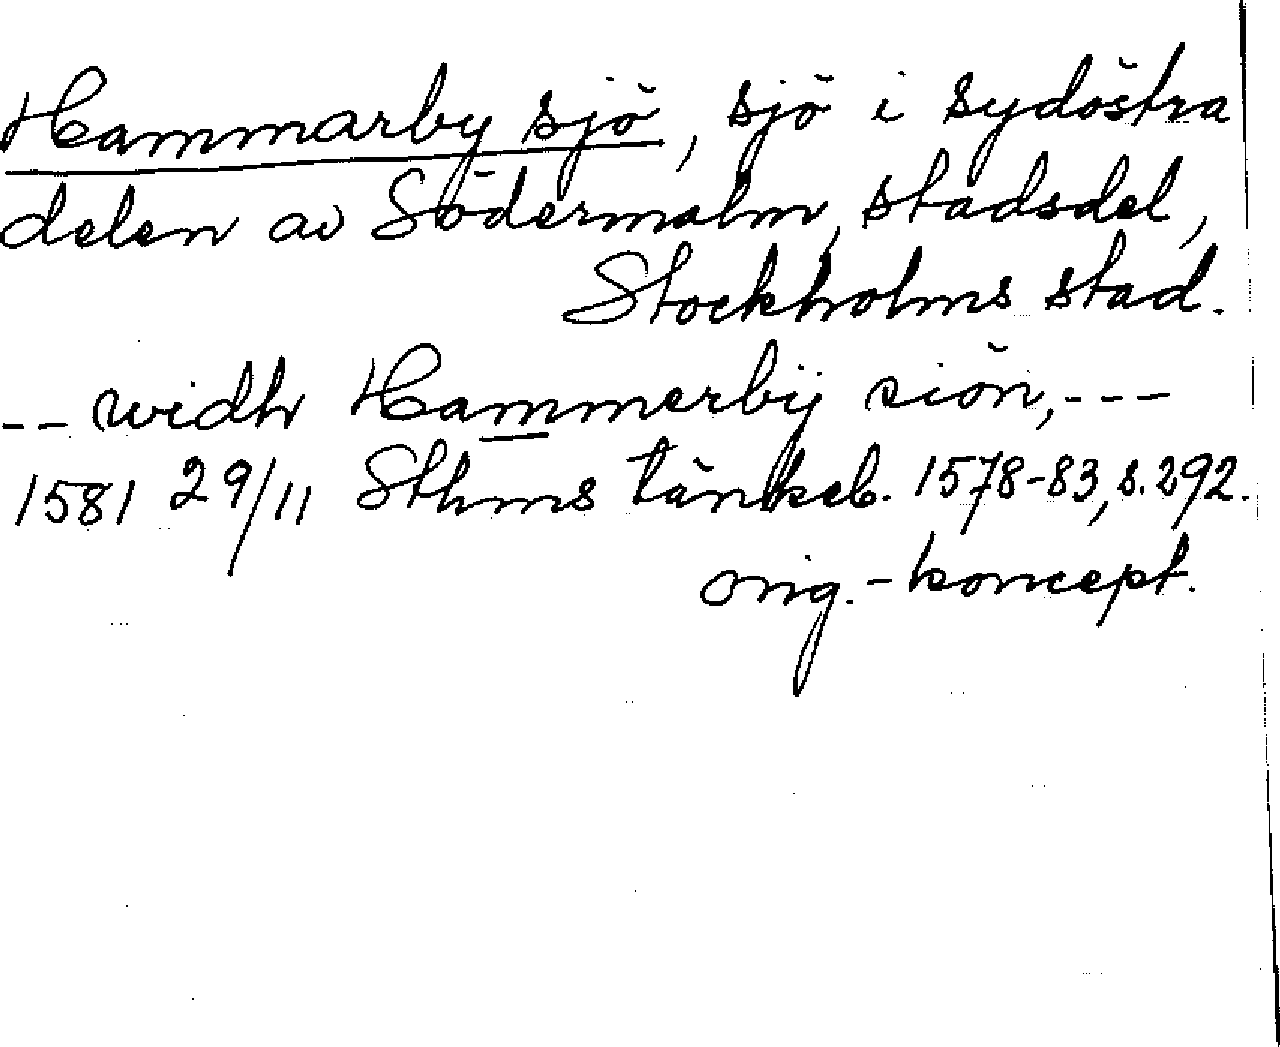 Hammarby sjö, sjö i sydöstra
delen av Södermalm, stadsdel,
Stockholms stad.
-- widh Hammerbÿ siön, ---
1581 29/11 Sthms tänkeb. 1578-83, s. 292.
orig.-koncept.